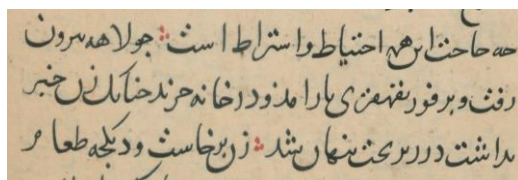 چه حاجت این همه احتیاط و استراط است جولاهه بیرون
رفت و بر فور بقهقری باز آمد و در خانه خزید چنانک زن خبر
نداشت در زیر تخت پنهان شد زن برخاست و دیکچه طعام بر